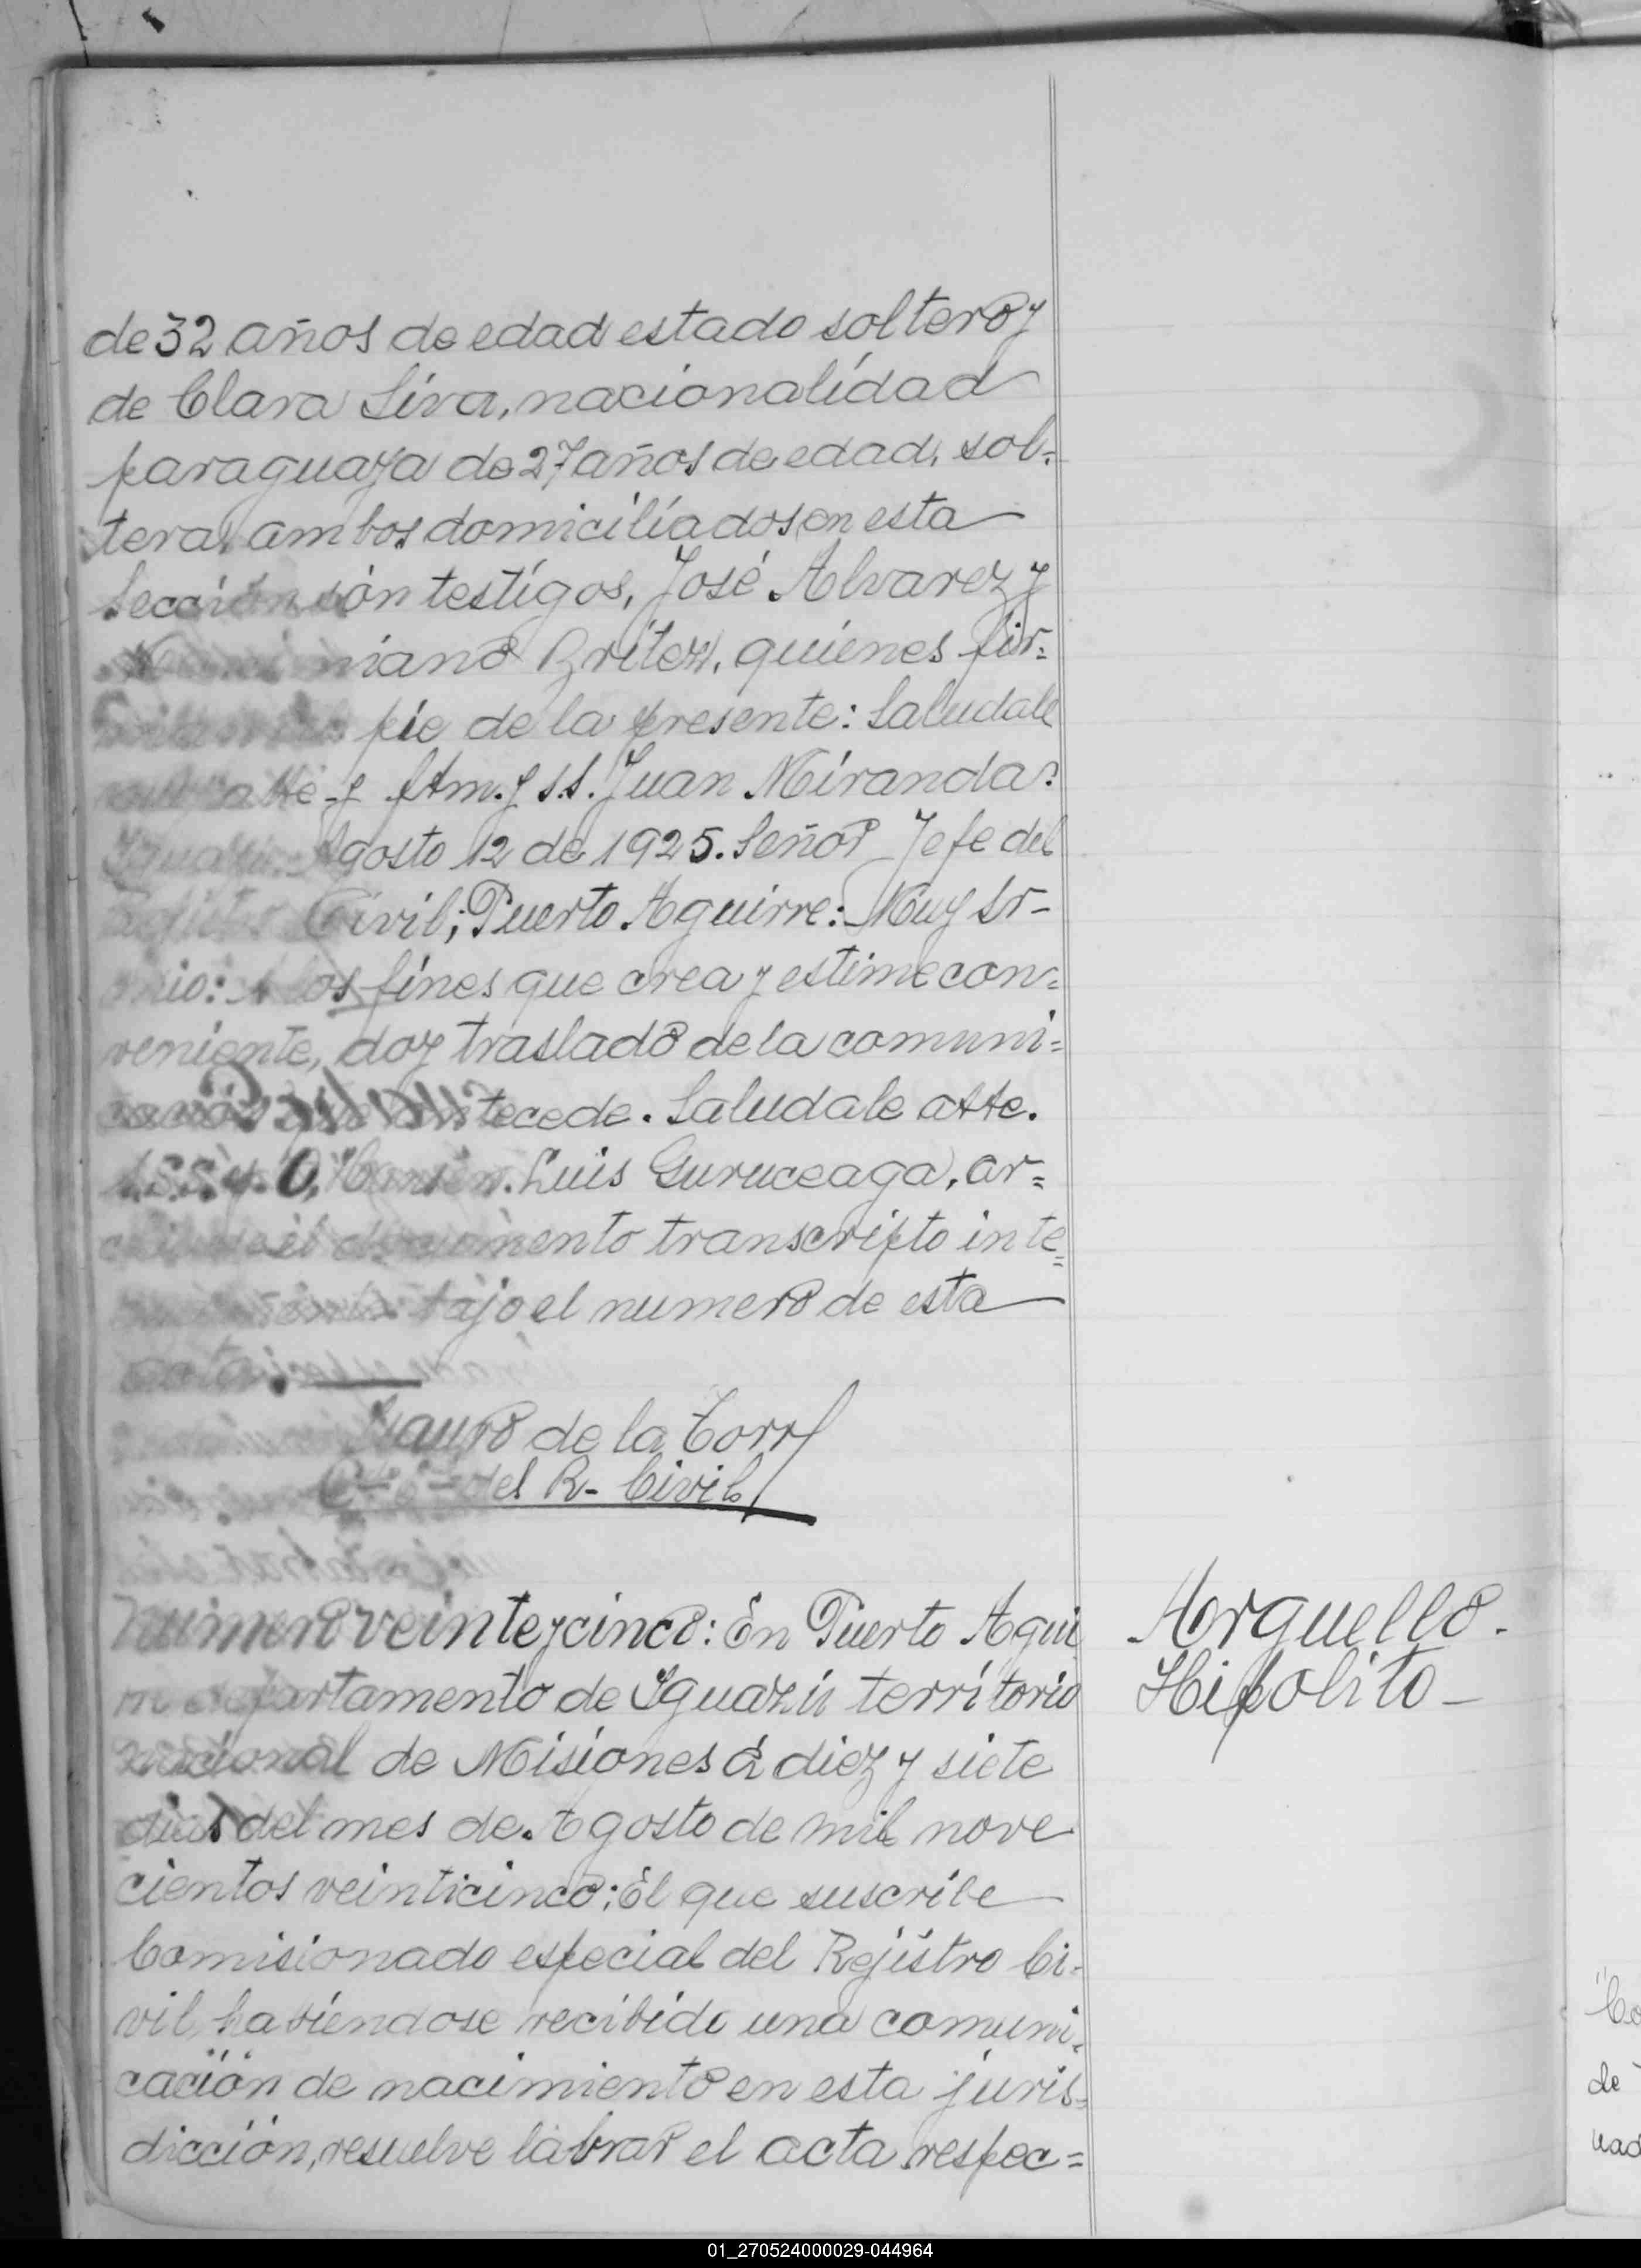 de 32 años de edad estado soltero y
de Clara Siva, nacionalidad
paraguaya de 27 años de edad, sol-
tera, ambos domiciliados en esta
Sección són testigos, José Alvarez y
niano Britez, quienes fir-
pie de la presente: Saludale
atte y Juan Miranda:
Iguazú Agosto 12 de 1925. Señor Jefe del
Civil; Puerto Aguirre: Muy Sr-
mio: A los fines que crea y estime con=
veniente, doy traslado de la comuni=
cación que antecede. Saludale atte.
S.S.S. y O. Luis Guruceaga, ar=
el documento transcripto inte=
bajo el numero de esta
acta:
Mauro de la Torre
del R- Civil
Numero veinte y cinco: En Puerto Agui
departamento de Iguazú territorio
nacional de Misiones á diez y siete
dias del mes de Agosto de mil nove
cientos veinticinco: El que suscribe
Comisionado especial del Rejistro Ci-
vil, habiendose recibido una comuni-
cación de nacimiento en esta juris-
dicción, resuelve labrar el acta respec=
Arguello.
Hipolito-
"Co
de
nad
01_270524000029-044964